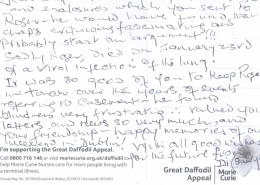 and enclosures which you sent to
Roger - he would have found that
chap's criticisms fascinating and
Probably start an argument!!!
Sadly Roger died on January 23rd
of a viral infection of the lung.
It was so good of you to keep Roger
in touch over the years of events
referring to Casement. he found
blindness very frustrating & valued your
letters and news so very much, and
your friendship - happy memories of our
in Dublin. With all good wishes
for the future from
I'm supporting the Great Daffodil Appeal.
Call 0800 716 146 or visit mariecurie.org.uk/daffodil to
help Marie Curie Nurses care for more people living with
a terminal illness.
Great Daffodil
Appeal
Marie
Curie